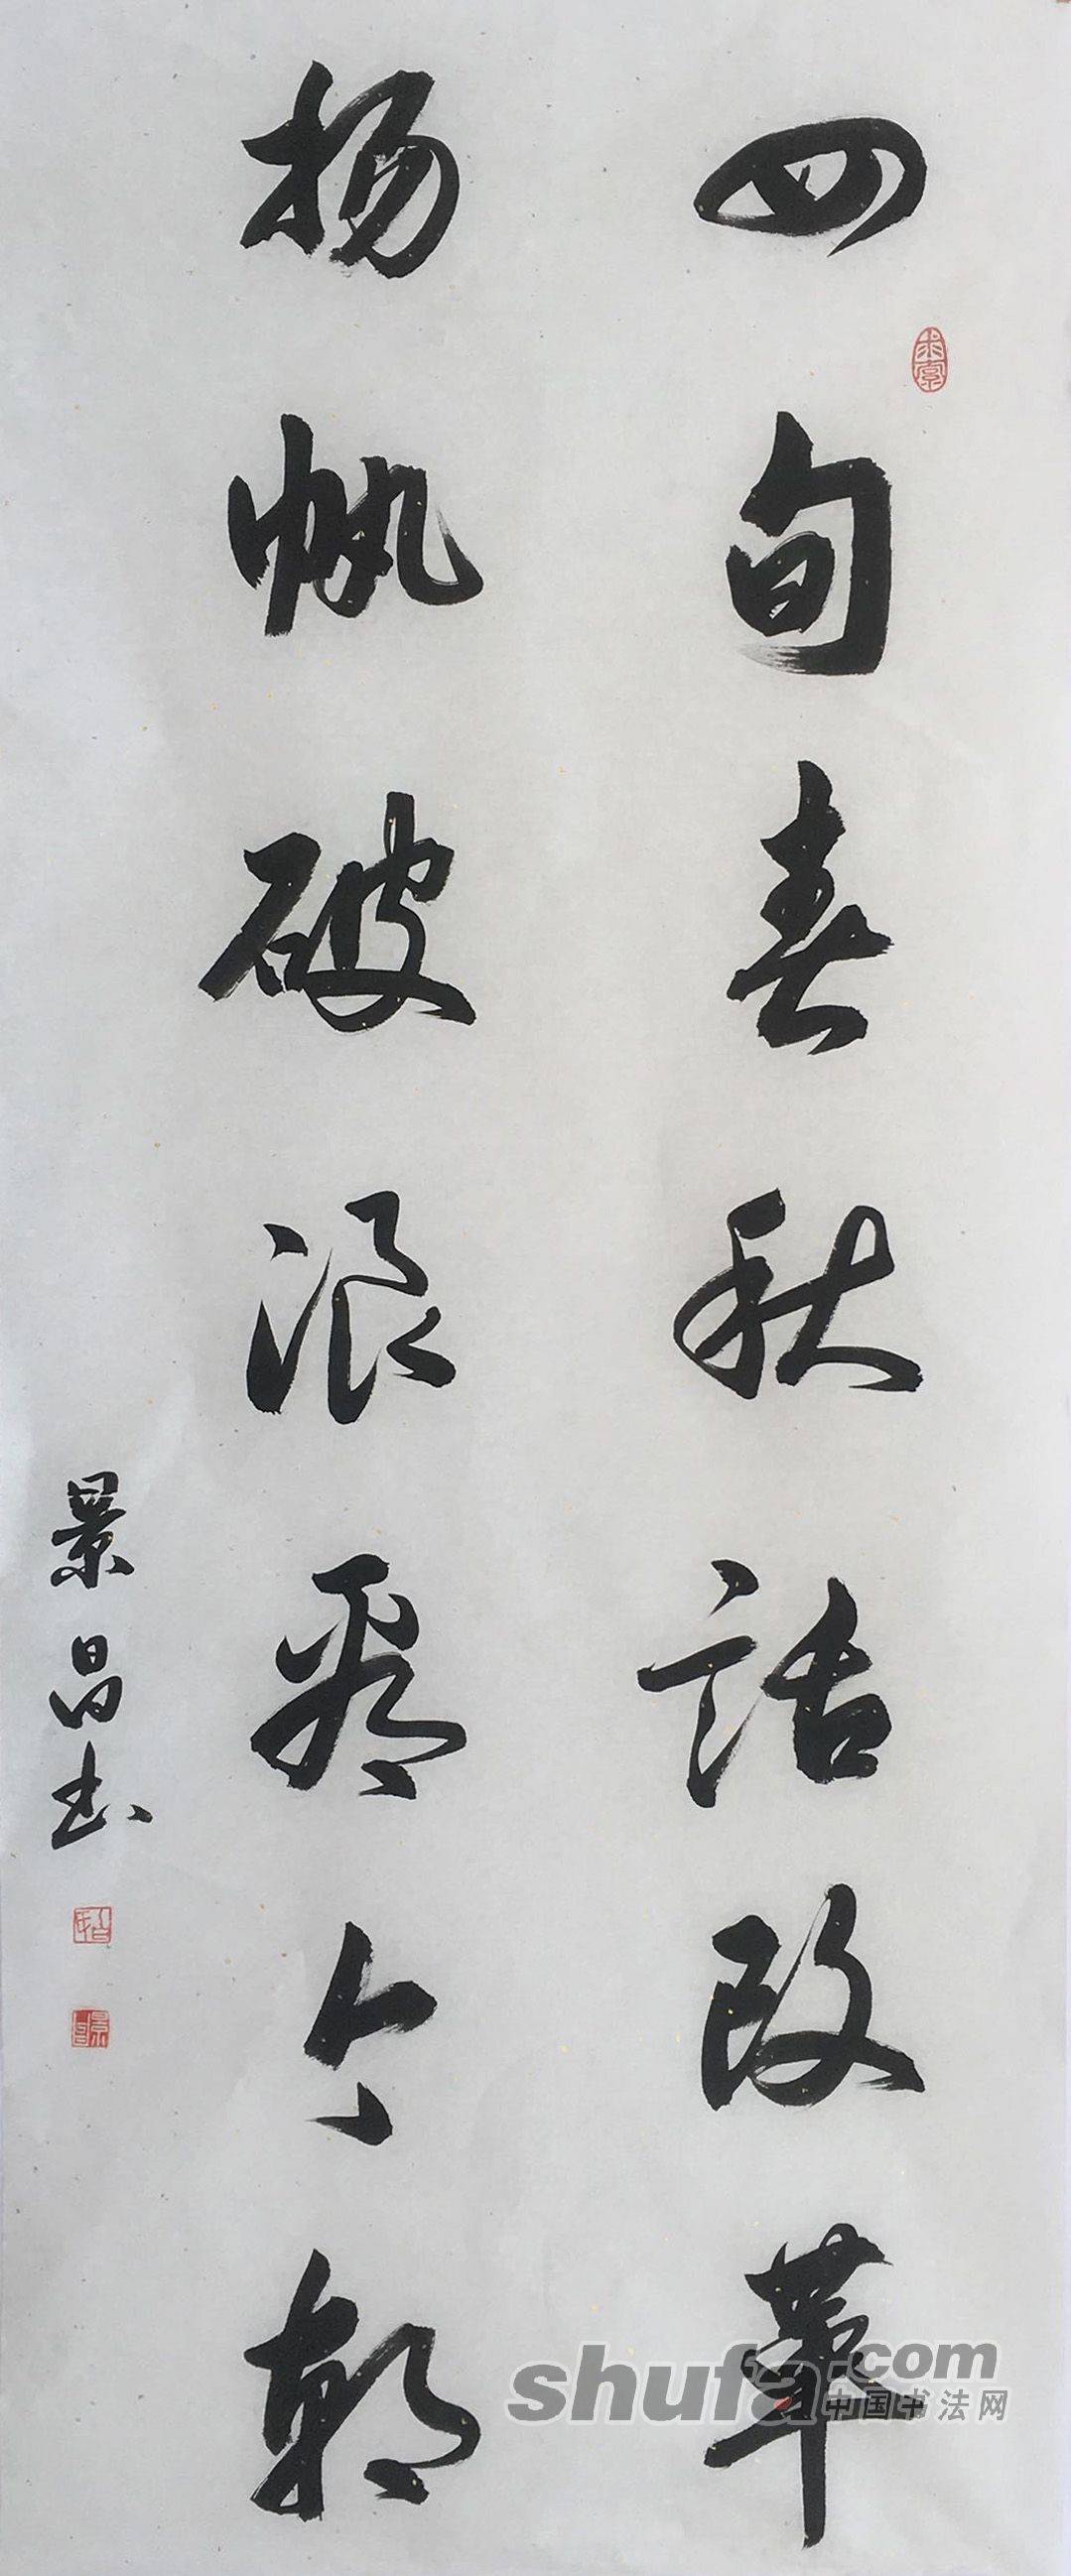 四旬春秋話改革
揚帆破浪看今朝
景昌书
shufa.com
中国书法网